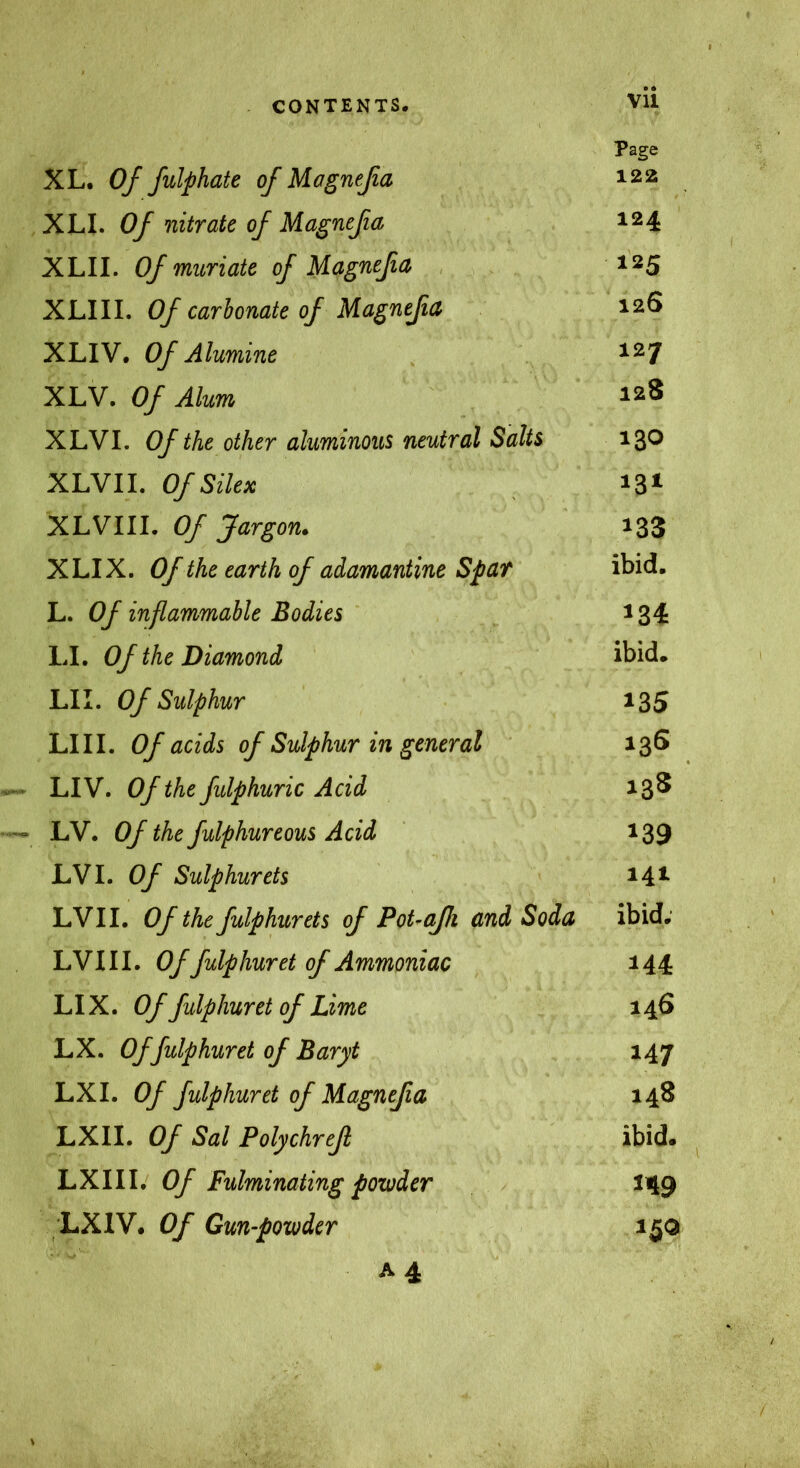 CONTENTS. vii
Page
XL. Of ſulphate of Magneſia 122
XLI. Of nitrate of Magneſia 124
XLII. Of muriate of Magneſia 125
XLIII. Of carbonate of Magneſia 126
XLIV. Of Alumine 127
XLV. Of Alum 128
XLVI. Of the other aluminous neutral Salts 130
XLVII. Of Silex 131
XLVIII. Of Jargon. 133
XLIX. Of the earth of adamantine Spar ibid.
L. Of inflammable Bodies 134
LI. Of the Diamond ibid.
LII. Of Sulphur 135
LIII. Of acids of Sulphur in general 136
LIV. Of the ſulphuric Acid 138
LV. Of the ſulphureous Acid 139
LVI. Of Sulphurets 141
LVII. Of the ſulphurets of Pot-aſh and Soda ibid.
LVIII. Of ſulphuret of Ammoniac 144
LIX. Of ſulphuret of Lime 146
LX. Of ſulphuret of Baryt 147
LXI. Of ſulphuret of Magneſia 148
LXII. Of Sal Polychreſt ibid.
LXIII. Of Fulminating powder 149
LXIV. Of Gun-powder 150
A 4